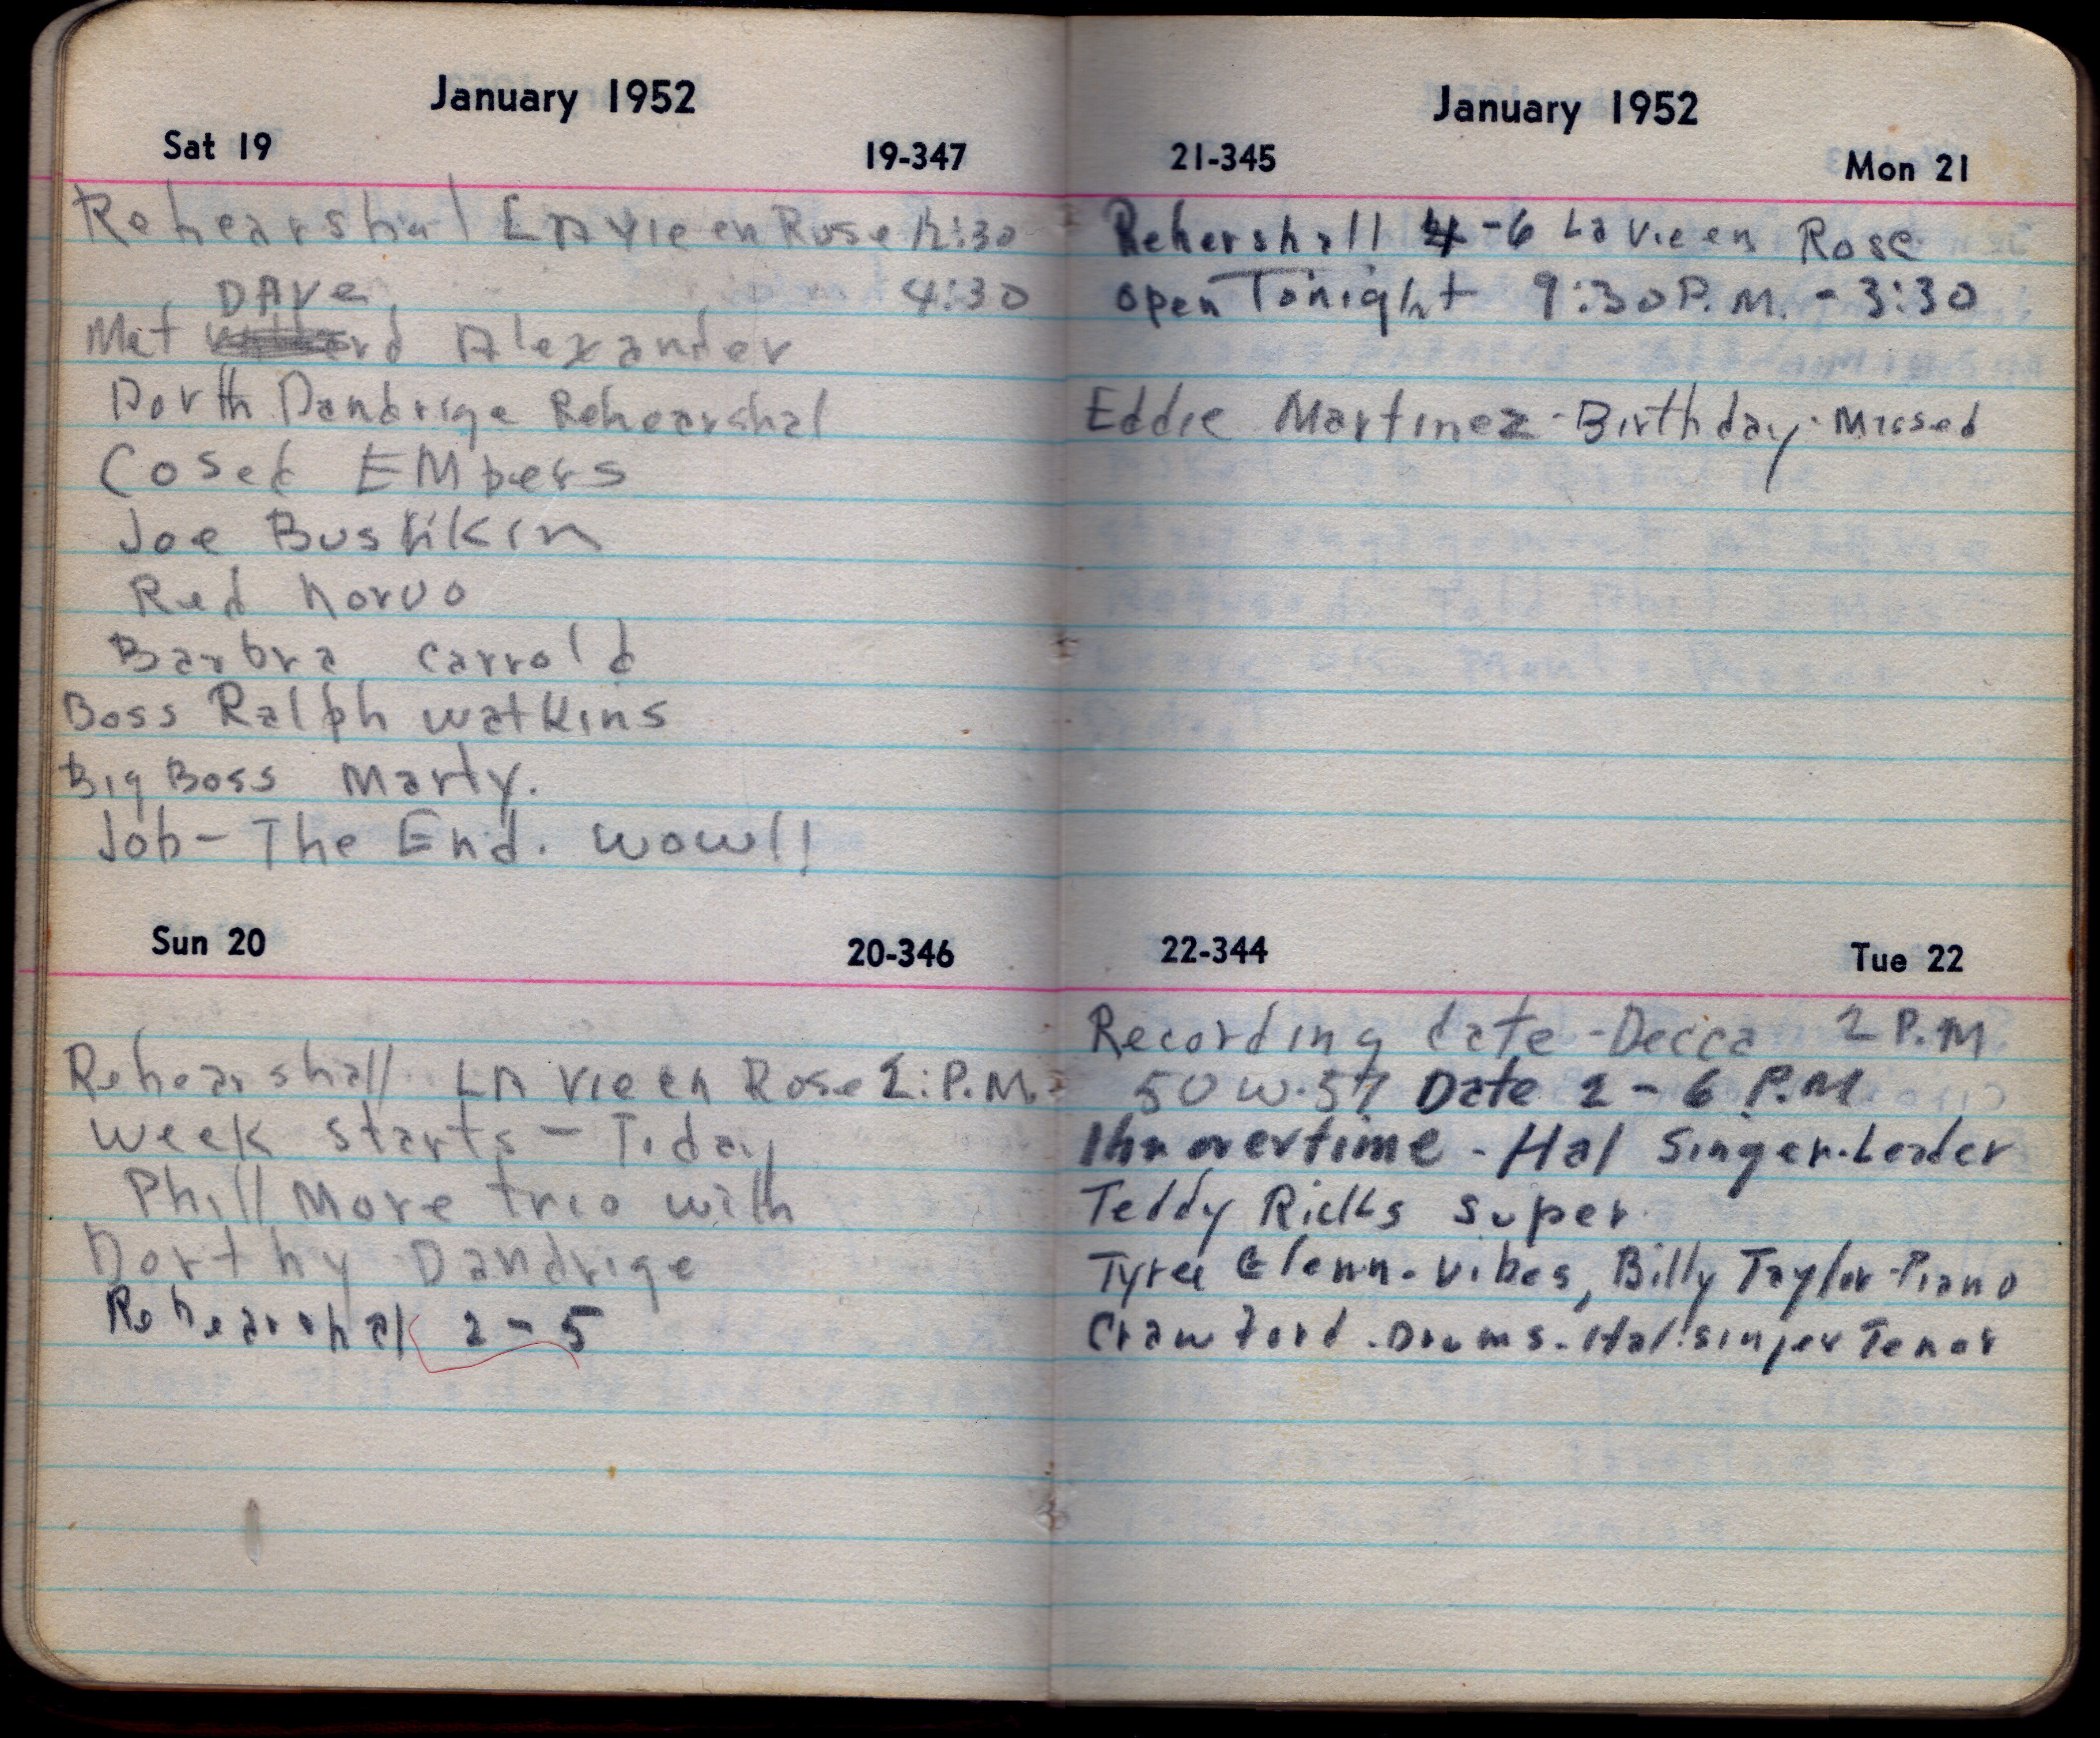 January 1952
Sat 19 19-347
Rehearshal LA Vie en Rose 12:30
DAVe 4:30
Met Alexander
Dorth Dandrige Rehearshal
Cosed EMbers
Joe Bushkin
Red Norvo
Barbra Carrold
Boss Ralph Watkins
Big Boss Marty.
Job - The End. Wow!!
Sun 20 20-346
Rehearshall LA Vie en Rose 2: P.M.
Week starts - Today
Phill More trio with
Dorthy Dandrige
Rehearshal 2 - 5
January 1952
21-345 Mon 21
Rehershall 4 - 6 La Vie en Rose
Open Tonight 9:30 P.M. - 3:30
Eddie Martinez - Birthday - Missed
22-344 Tue 22
Recording date - Decca 2 P.M
50 W. 57 Date 2 - 6 P.M
1hr overtime - Hal Singer - Leader
Teddy Ricks super
Tyree Glenn - Vibes, Billy Taylor - Piano
Crawford - Drums - Hal Singer Tenor